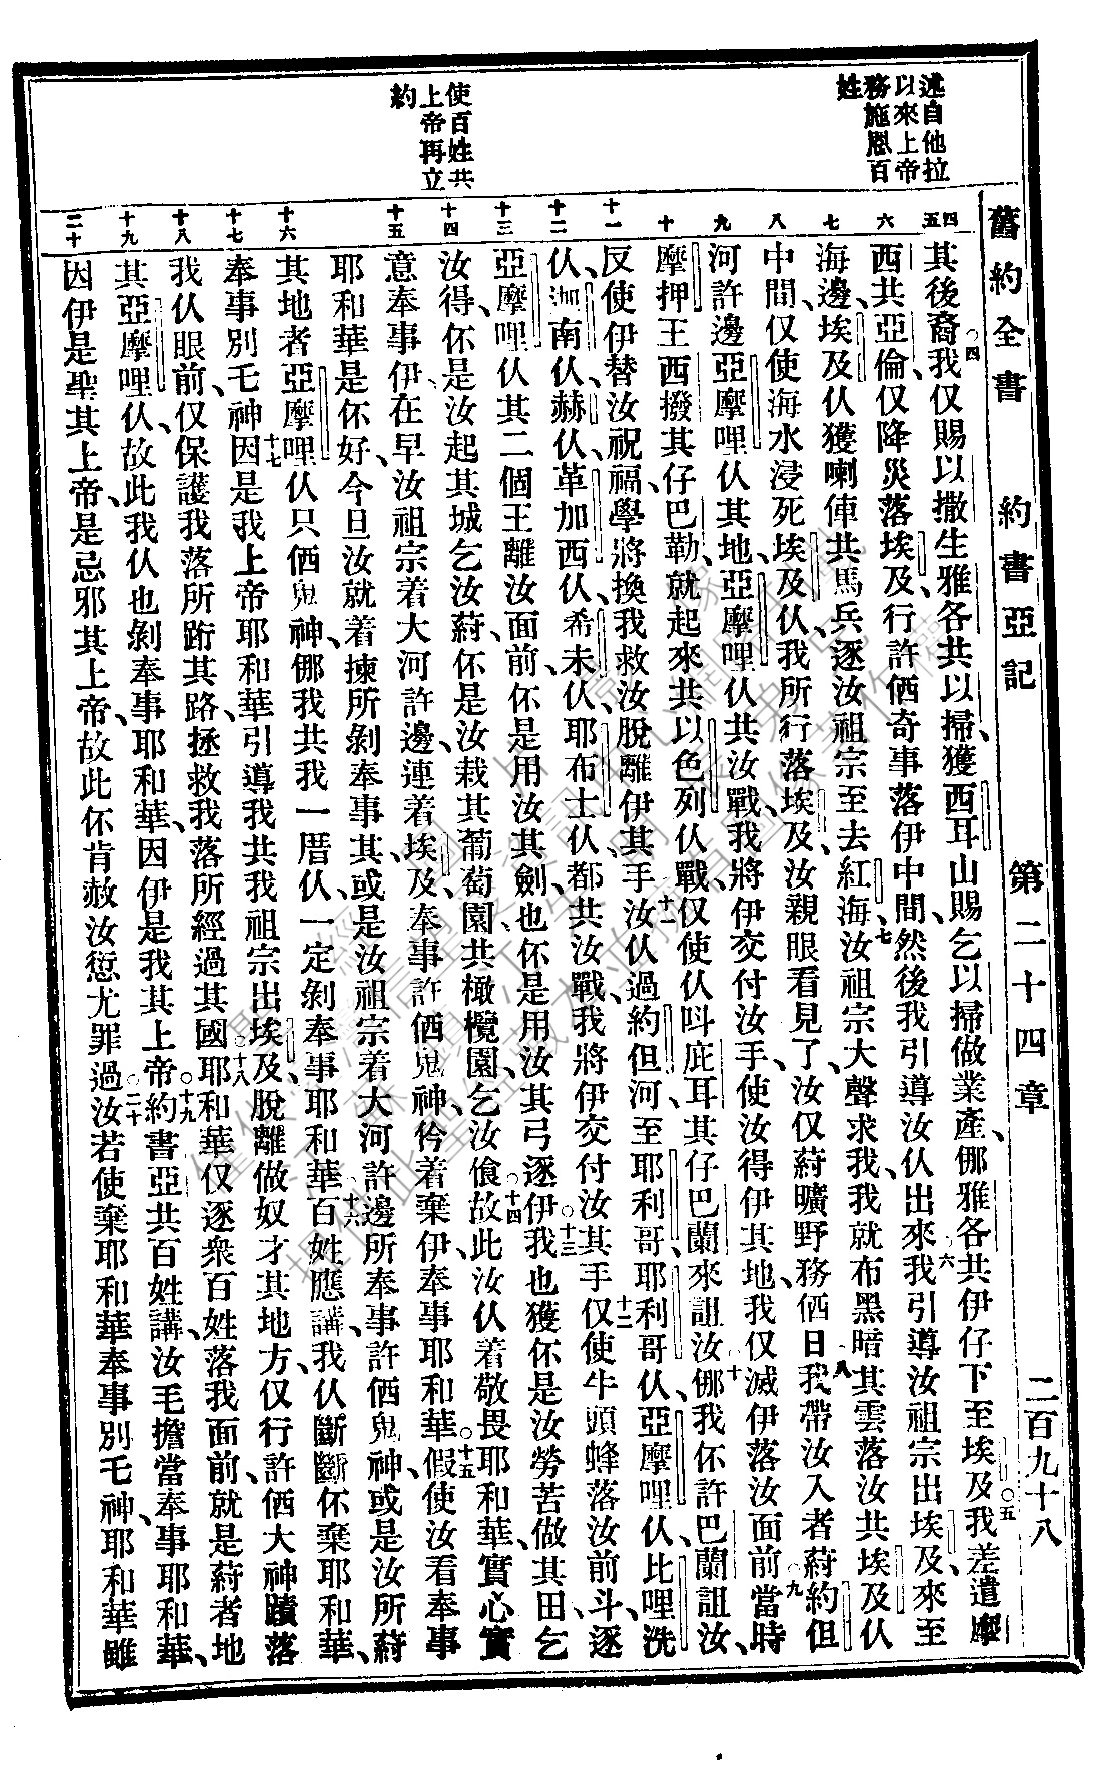 舊約全書 約書亞記 第二十四章 二百九十八
述自他拉
以來上帝
務施恩百
姓
使百姓共
上帝再立
約
四
五
其後裔我仅賜以撒生雅各共以掃獲西耳山賜乞以掃做業產、㑚雅各共伊仔下至埃及我差遣摩
六
西共亞倫仅降災落埃及、行許㑚奇事落伊中間然後我引導汝仈出來我引導汝祖宗出埃及、來至
七
海邊、埃及仈獲喇俥共馬兵逐汝祖宗至去紅海汝祖宗大聲求我、我就布黑暗其雲落汝共埃及仈
八
中間、仅使海水浸死埃及仈、我所行落埃及汝親眼看見了、汝仅蒞曠野務㑚日我帶汝入者蒞約但
九
河許邊亞摩哩仈其地、亞摩哩仈共汝戰、我將伊交付汝手、使汝得伊其地、我仅滅伊落汝面前當時
十
摩押王西撥其仔巴勒、就起來共以色列仈戰、仅使仈呌庇耳其仔巴蘭來詛汝㑚我伓許巴蘭詛汝、
十一
反使伊替汝祝福、學將換我救汝脫離伊其手汝仈過約但河至耶利哥、耶利哥仈、亞摩哩仈、比哩洗
十二
仈、迦南仈、赫仈、革加西仈、希未仈耶布士仈、都共汝戰、我將伊交付汝其手仅使牛頭蜂落汝前斗、逐
十三
亞摩哩仈其二個王離汝面前、伓是用汝其劍也伓是用汝其弓逐伊我也獲伓是汝勞苦做其田、乞
十四
汝得、伓是汝起其城乞汝蒞、伓是汝栽其葡萄園共橄欖園、乞汝飡故此汝仈着敬畏耶和華實心實
十五
意奉事伊、在早汝祖宗着大河許邊、連着埃及、奉事許㑚鬼神、仱着棄伊、奉事耶和華假使汝看奉事
耶和華是伓好、今旦汝就着揀所剝奉事其、或是汝祖宗着大河許邊所奉事許㑚鬼神、或是汝所蒞
十六
其地者亞摩哩仈只㑚鬼神、㑚我共我一厝仈一定剝奉事耶和華百姓應講、我仈斷斷伓棄耶和華、
十七
奉事別乇神因是我上帝耶和華、引導我共我祖宗出埃及、脫離做奴才其地方、仅行許㑚大神蹟落
十八
我仈眼前、仅保護我落所跡其路、拯救我落所經過其國耶和華仅逐衆百姓落我面前、就是蒞者地
十九
其亞摩哩仈、故此我仈也剝奉事耶和華、因伊是我其上帝約書亞共百姓講、汝毛擔當奉事耶和華、
二十
因伊是聖其上帝、是忌邪其上帝、故此伓肯赦汝愆尤罪過汝若使棄耶和華奉事別乇神、耶和華雖